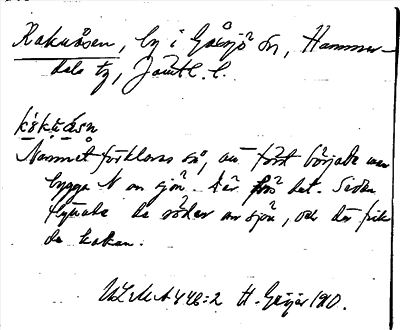 Kakuåsen, by i Gåxsjö sn, Hammer-
dals tg, Jämtl. l.
kákuåsn
Namnet förklaras så, att först började man
bygga N om sjön. där frös det. Sedan
flyttade de söder om sjön, och där fick
de kakan.
ULMA 446:2 H. Geijer 1910.